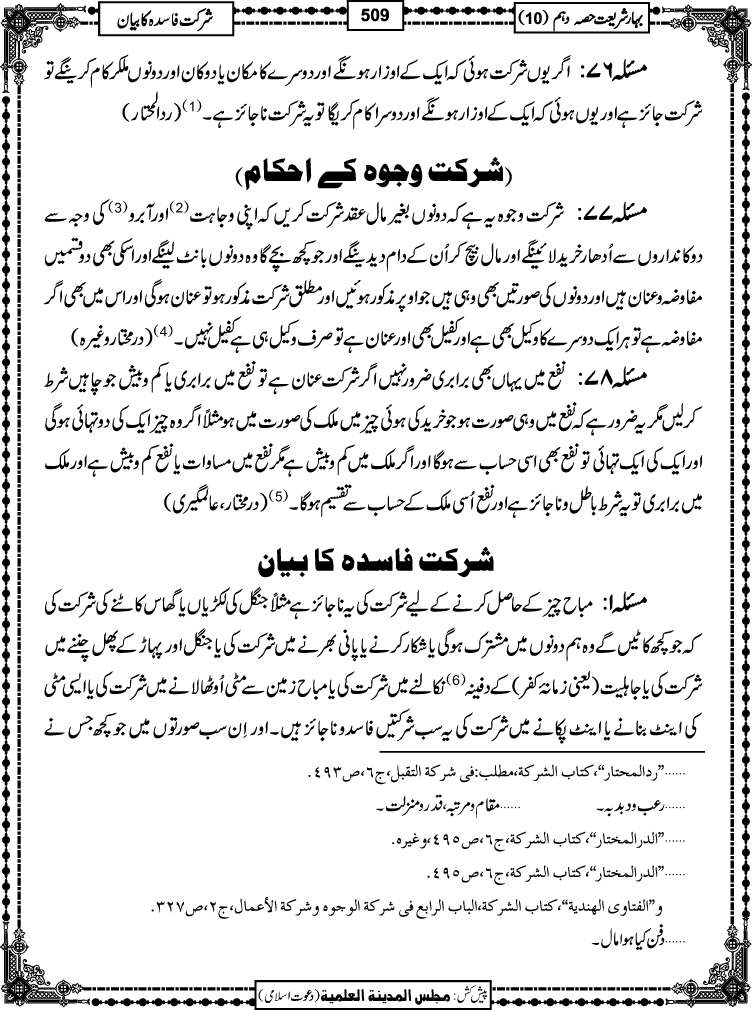 بہار شریعت حصہ دہم (10)
509
شرکت فاسدہ کا بیان
مسئلہ ۷۶: اگر یوں شرکت ہوئی کہ ایک کے اوزار ہونگے اور دوسرے کا مکان یا دوکان اور دونوں ملکر کام کرینگے تو
شرکت جائز ہے اور یوں ہوئی کہ ایک کے اوزار ہونگے اور دوسرا کام کریگا تو یہ شرکت ناجائز ہے۔(1) (ردالمحتار)
(شرکت وجوہ کے احکام)
مسئلہ ۷۷: شرکت وجوہ یہ ہے کہ دونوں بغیر مال عقد شرکت کریں کہ اپنی وجاہت(2) اور آبرو(3) کی وجہ سے
دوکانداروں سے اُدھار خرید لائینگے اور مال بیچ کر اُن کے دام دیدینگے اور جو کچھ بچے گا وہ دونوں بانٹ لینگے اور اسکی بھی دو قسمیں
مفاوضہ و عنان ہیں اور دونوں کی صورتیں بھی وہی ہیں جو اوپر مذکور ہوئیں اور مطلق شرکت مذکور ہو تو عنان ہوگی اور اس میں بھی اگر
مفاوضہ ہے تو ہر ایک دوسرے کا وکیل بھی ہے اور کفیل بھی اور عنان ہے تو صرف وکیل ہی ہے کفیل نہیں۔(4) (درمختار وغیرہ)
مسئلہ ۷۸: نفع میں یہاں بھی برابری ضرور نہیں اگر شرکت عنان ہے تو نفع میں برابری یا کم و بیش جو چاہیں شرط
کرلیں مگر یہ ضرور ہے کہ نفع میں وہی صورت ہو جو خرید کی ہوئی چیز میں ملک کی صورت میں ہو مثلاً اگر وہ چیز ایک کی دو تہائی ہوگی
اور ایک کی ایک تہائی تو نفع بھی اسی حساب سے ہوگا اور اگر ملک میں کم و بیش ہے مگر نفع میں مساوات یا نفع کم و بیش ہے اور ملک
میں برابری تو یہ شرط باطل و ناجائز ہے اور نفع اُسی ملک کے حساب سے تقسیم ہوگا۔(5) (درمختار، عالمگیری)
شرکت فاسدہ کا بیان
مسئلہ ۱: مباح چیز کے حاصل کرنے کے لیے شرکت کی یہ ناجائز ہے مثلاً جنگل کی لکڑیاں یا گھاس کاٹنے کی شرکت کی
کہ جو کچھ کاٹیں گے وہ ہم دونوں میں مشترک ہوگی یا شکار کرنے یا پانی بھرنے میں شرکت کی یا جنگل اور پہاڑ کے پھل چننے میں
شرکت کی یا جاہلیت (یعنی زمانۂ کفر) کے دفینہ(6) نکالنے میں شرکت کی یا مباح زمین سے مٹی اُوٹھا لانے میں شرکت کی یا ایسی مٹی
کی اینٹ بنانے یا اینٹ پکانے میں شرکت کی یہ سب شرکتیں فاسد و ناجائز ہیں۔ اور اِن سب صورتوں میں جو کچھ جس نے
......"ردالمحتار"،کتاب الشرکة،مطلب:فی شرکة التقبل،ج۶،ص۴۹۳.
......رعب و دبدبہ۔ ......مقام و مرتبہ، قدر و منزلت۔
......"الدرالمختار"،کتاب الشرکة،ج۶،ص۴۹۵،وغیرہ.
......"الدرالمختار"،کتاب الشرکة،ج۶،ص۴۹۵.
و"الفتاوی الهندیة"،کتاب الشرکة،الباب الرابع فی شرکة الوجوه وشرکة الأعمال،ج۲،ص۳۲۷.
......دفن کیا ہوا مال۔
پیش کش: مجلس المدینة العلمیة (دعوت اسلامی)